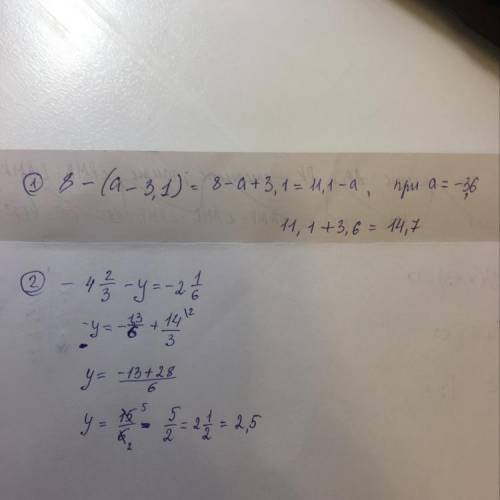 ① 8 - (a - 3,1) = 8 - a + 3,1 = 11,1 - a, при a = -3,6
11,1 + 3,6 = 14,7
② - 4 2/3 - y = -2 1/6
-y = -13/6 + 14/3 \2
y = (-13+28)/6
y = 15/6 5 2 = 5/2 = 2 1/2 = 2,5